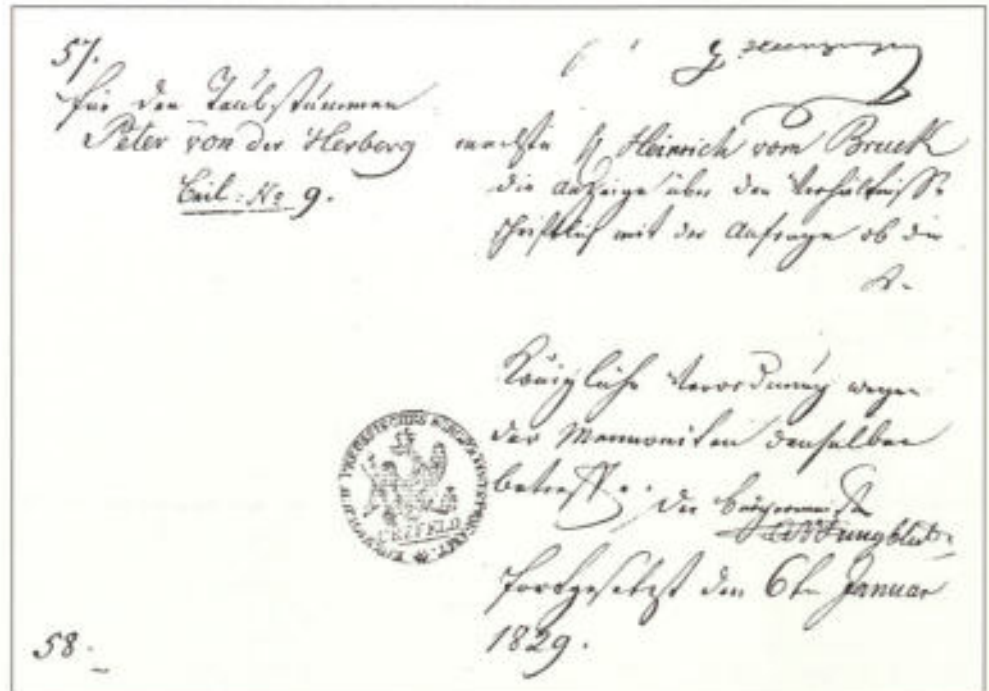 57.
für den Taubstummen
Peter von der Herberg
Beil: No 9.
machte H Heinrich vom Bruck
die Anzeige über den Verhältnisse
schriftlich mit der Anfrage ob die
K-
Königliche Verordnung wegen
der Mennoniten denselben
betreffe.
Der Bürgermeister
Jungbluth
fortgesetzt den 6ten Januar
1829.
CREFELD
58.